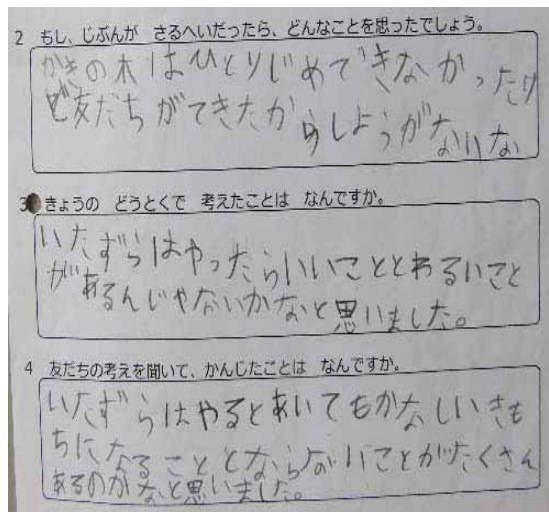 2 もし、じぶんが さるへいだったら、どんなことを思ったでしょう。
かきの木はひとりじめできなかったけ
ど友だちができたからしようがないな
3 きょうの どうとくで 考えたことは なんですか。
いたずらはやったらいいこととわるいこと
があるんじゃないかなと思いました。
4 友だちの考えを聞いて、かんじたことは なんですか。
いたずらはやるとあいてもかなしいきも
ちになることとならないことがたくさん
あるのかなと思いました。